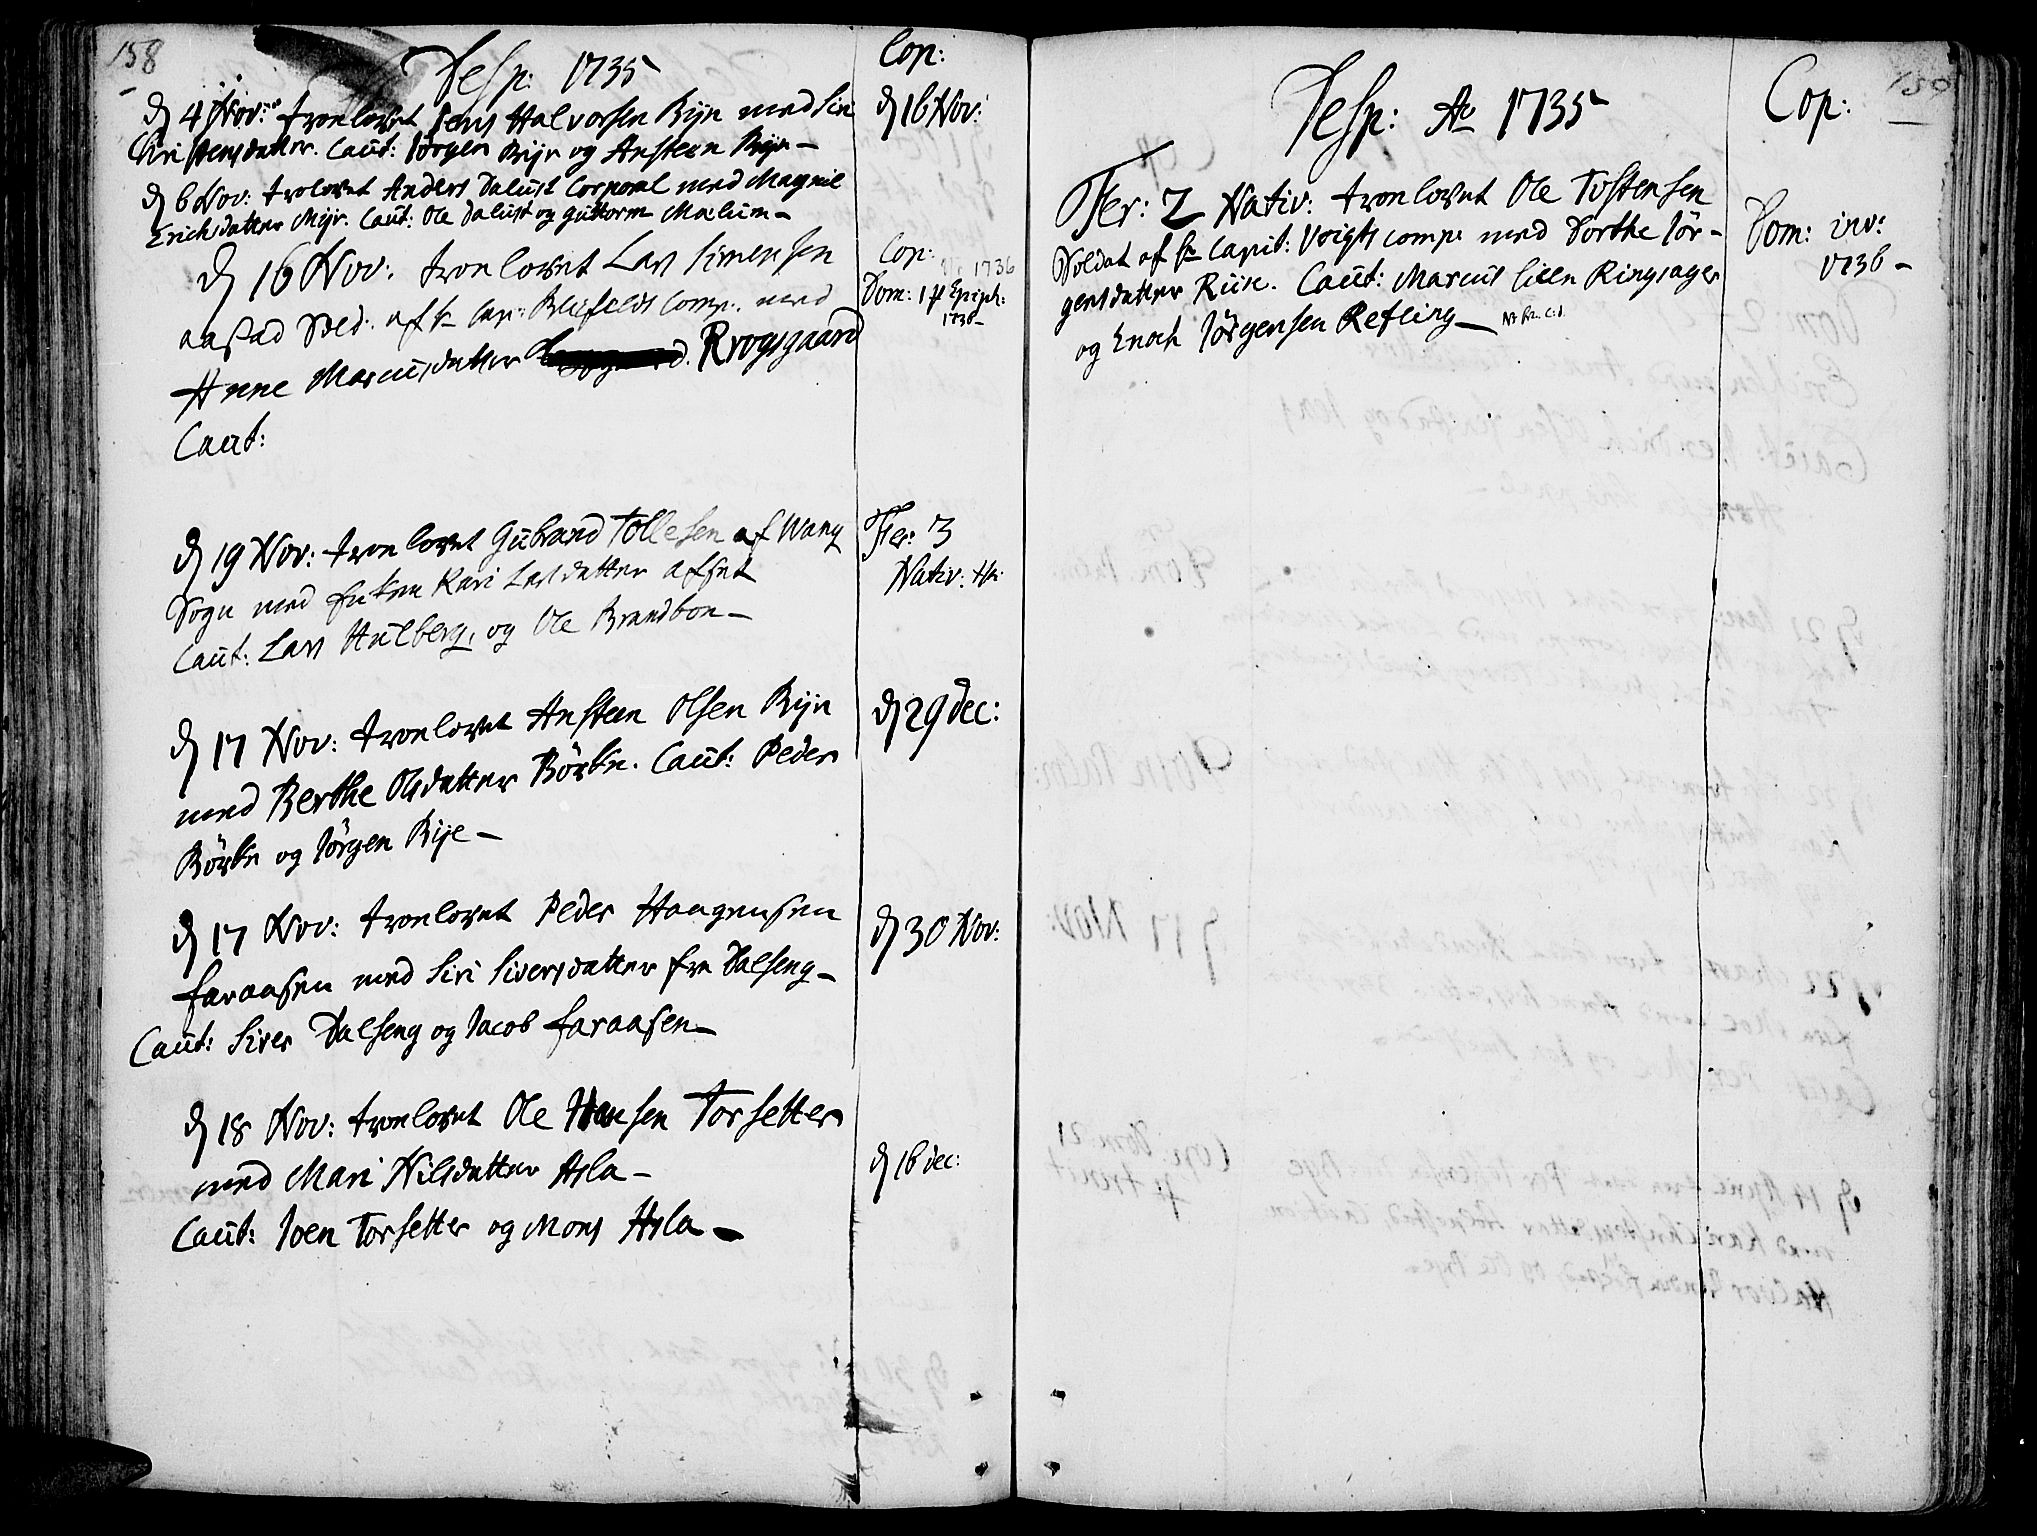 158
Desp: 1735
Cop:
d 4 Nov: troelovet Jens Halvorsen Ryn med Siri
Christensdatter. Caut: Jörgen Ryn og Ansteen Ryn –
d 16 Nov:
d 6 Nov: trolovet Anders Dalust Corporal med Magnil
Erichsdatter Myr. Caut: Ole Dalust og Guttorm Mælum –
d 16 Nov: troelovet Lars Simensen
aaßad Sold: af Hr Cap: Blifeldts Comp: med
Anne Marcusdatter Krogsgaard
Caut:
Cop:
1736
Dom: 1 p Epiph:
1736 –
d 19 Nov: troelovet Gulbrand Tollesen af Wang
Sogn med Enken Kari Larsdatter afset
Caut: Lars Hulberg, og Ole Brandbon –
Fer: 3
Nativ: Xti
d 17 Nov: troelovet Ansteen Olsen Ryn
med Berthe Olsdatter Börke. Caut: Peder
Börke og Jörgen Rye –
d 29 Dec:
d 17 Nov: troelovet Peder Haagensen
Faraasen med Siri Siversdatter fra Dalseng –
Caut: Siver Dalseng og Jacob Faraasen –
d 30 Nov:
d 18 Nov: troelovet Ole Hansen Torsetter
med Mari Nilsdatter Asla –
Caut: Joen Torsetter og Mons Asla –
d 16 Dec:
Desp: Ao 1735
Cop:
Fer: 2 Nativ: troelovet Ole Tostensen
Soldat af Hr Capit: Voigts comp: med Dorthe Jör-
gensdatter Riise. Caut: Marcus Lille Ringsager
og Enoch Jörgensen Refling –
Dom: inv:
1736 –